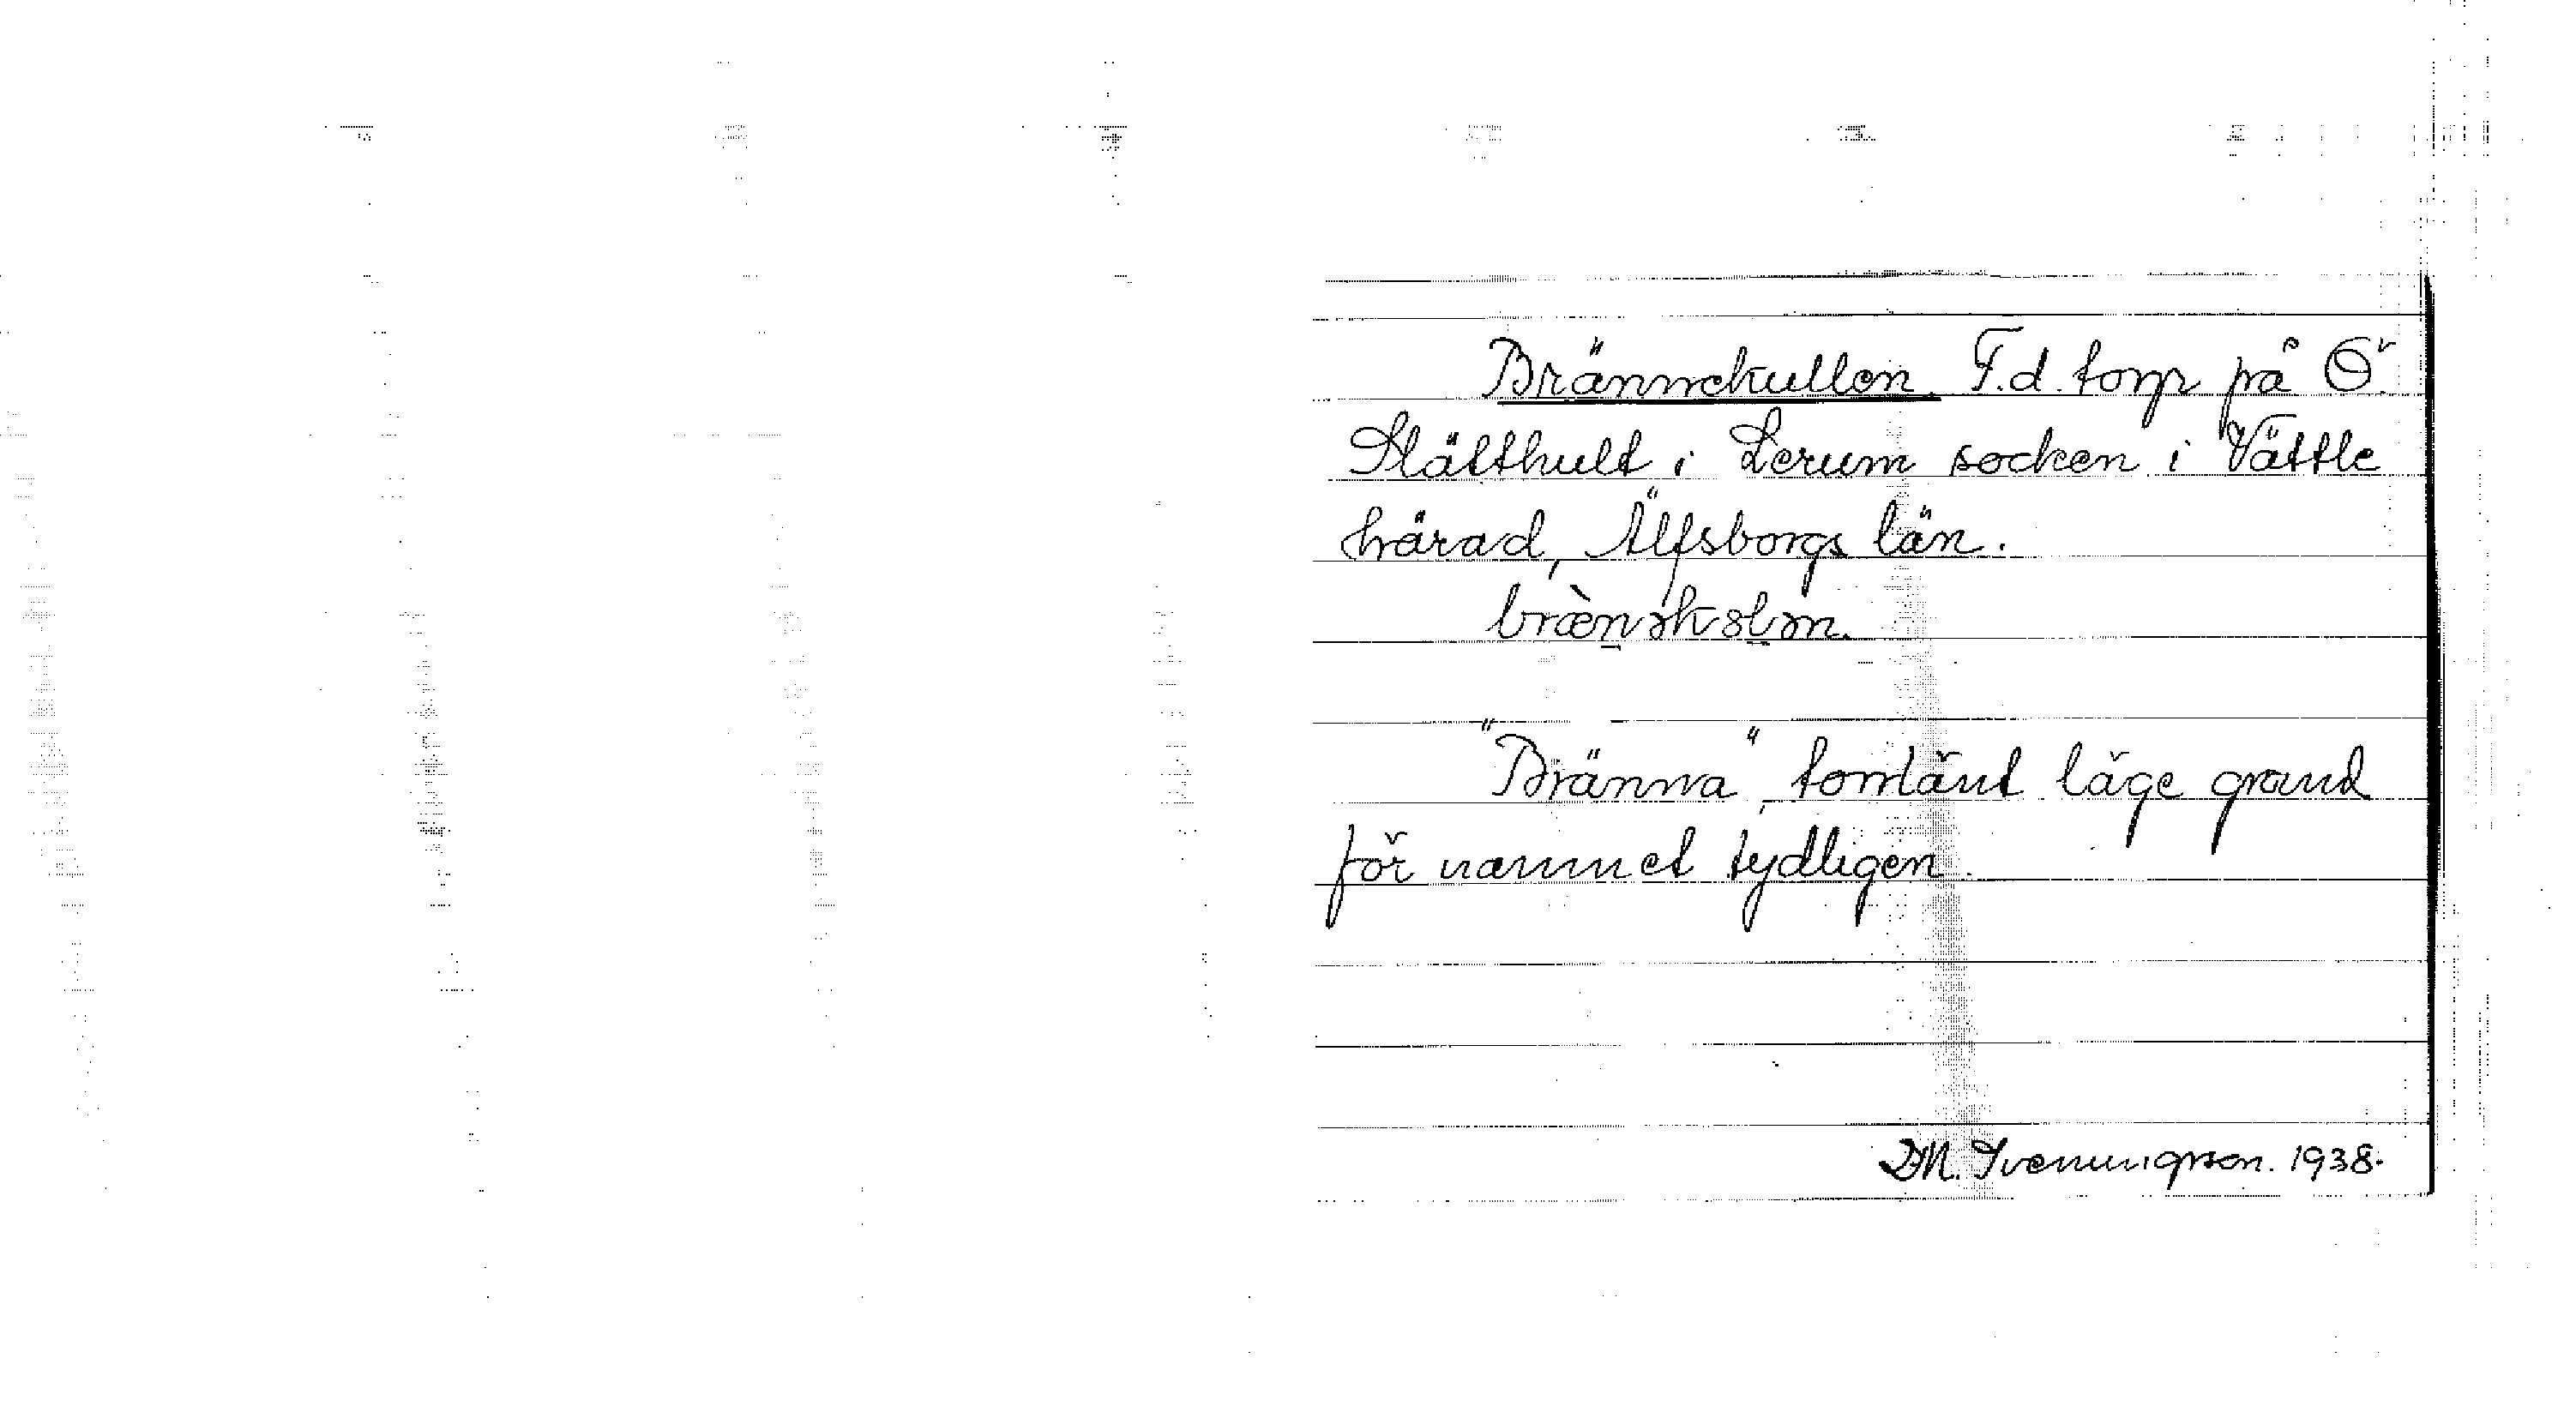 Brännekullen. F.d. torp på Ö.
Slätthult i Lerum socken i Vättle
härad, Älfsborgs län.
"Bränna", torrlänt läge grund
för namnet tydligen.
D.M. Svenningsson. 1938.